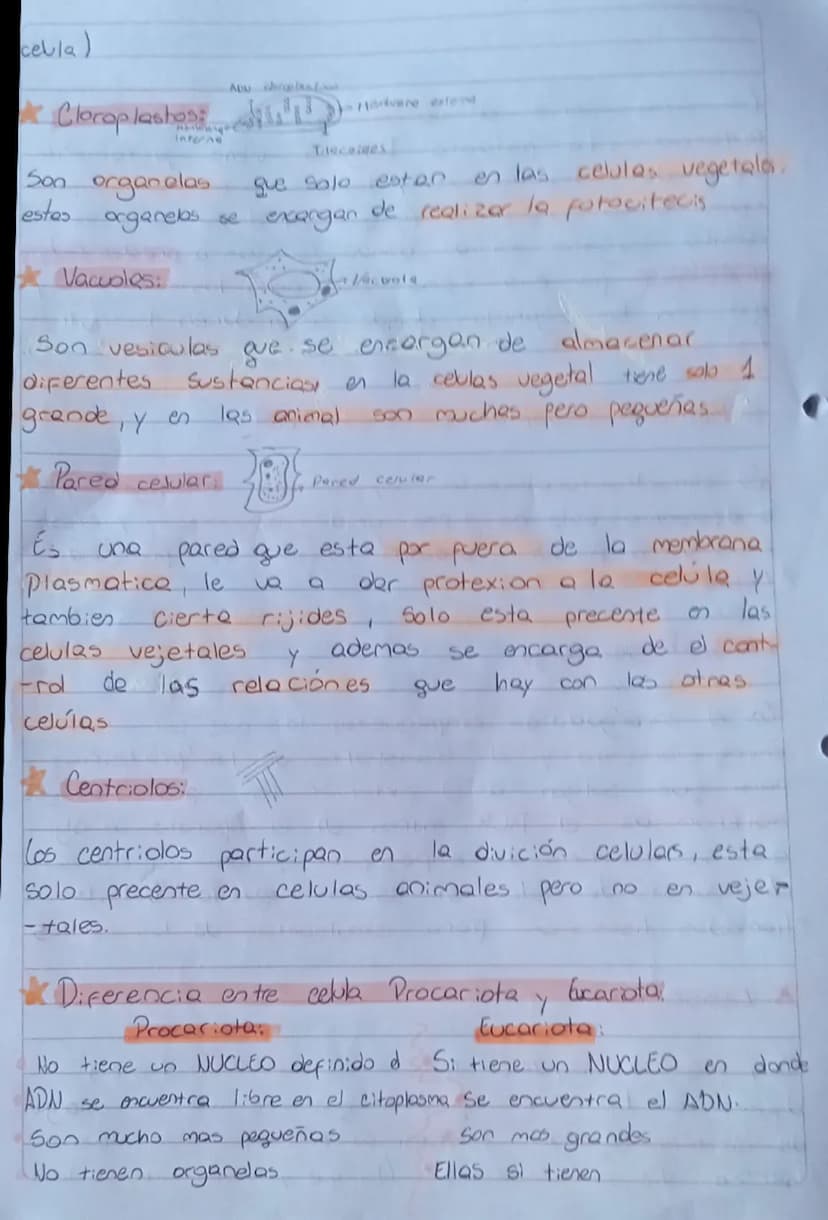 celula)
ADN
★ Cloroplastos:
Membrana externa
interna
Tilacoides
Son organelas que solo estan en las celulas vegetales.
estas organelas se encargan de realizar la fotocitecis
★ Vacuolas:
Vacuola
Son vesiculas que se encargan de almacenar
diferentes sustancias, en la celulas vegetal tiene solo 1
grande, y en las animal son muchas pero pequeñas
★ Pared celular:
Pared celular
Es una pared que esta por fuera de la membrana
plasmatica, le va a dar protexion a la celula y
tambien cierta rijides, solo esta precente en las
celulas vejetales y ademas se encarga de el cont-
-rol de las relaciónes que hay con las otras
celulas
★ Centriolos:
Los centriolos participan en la divición celulars, esta
solo precente en celulas animales pero no en veje-
-tales.
★ Diferencia entre celula Procariota y Eucariota:
Procariota: Eucariota:
No tiene un NUCLEO definido d Si tiene un NUCLEO en donde
ADN se encuentra libre en el citoplasma se encuentra el ADN.
Son mucho mas pequeñas son mas grandes
No tienen organelas Ellas si tienen